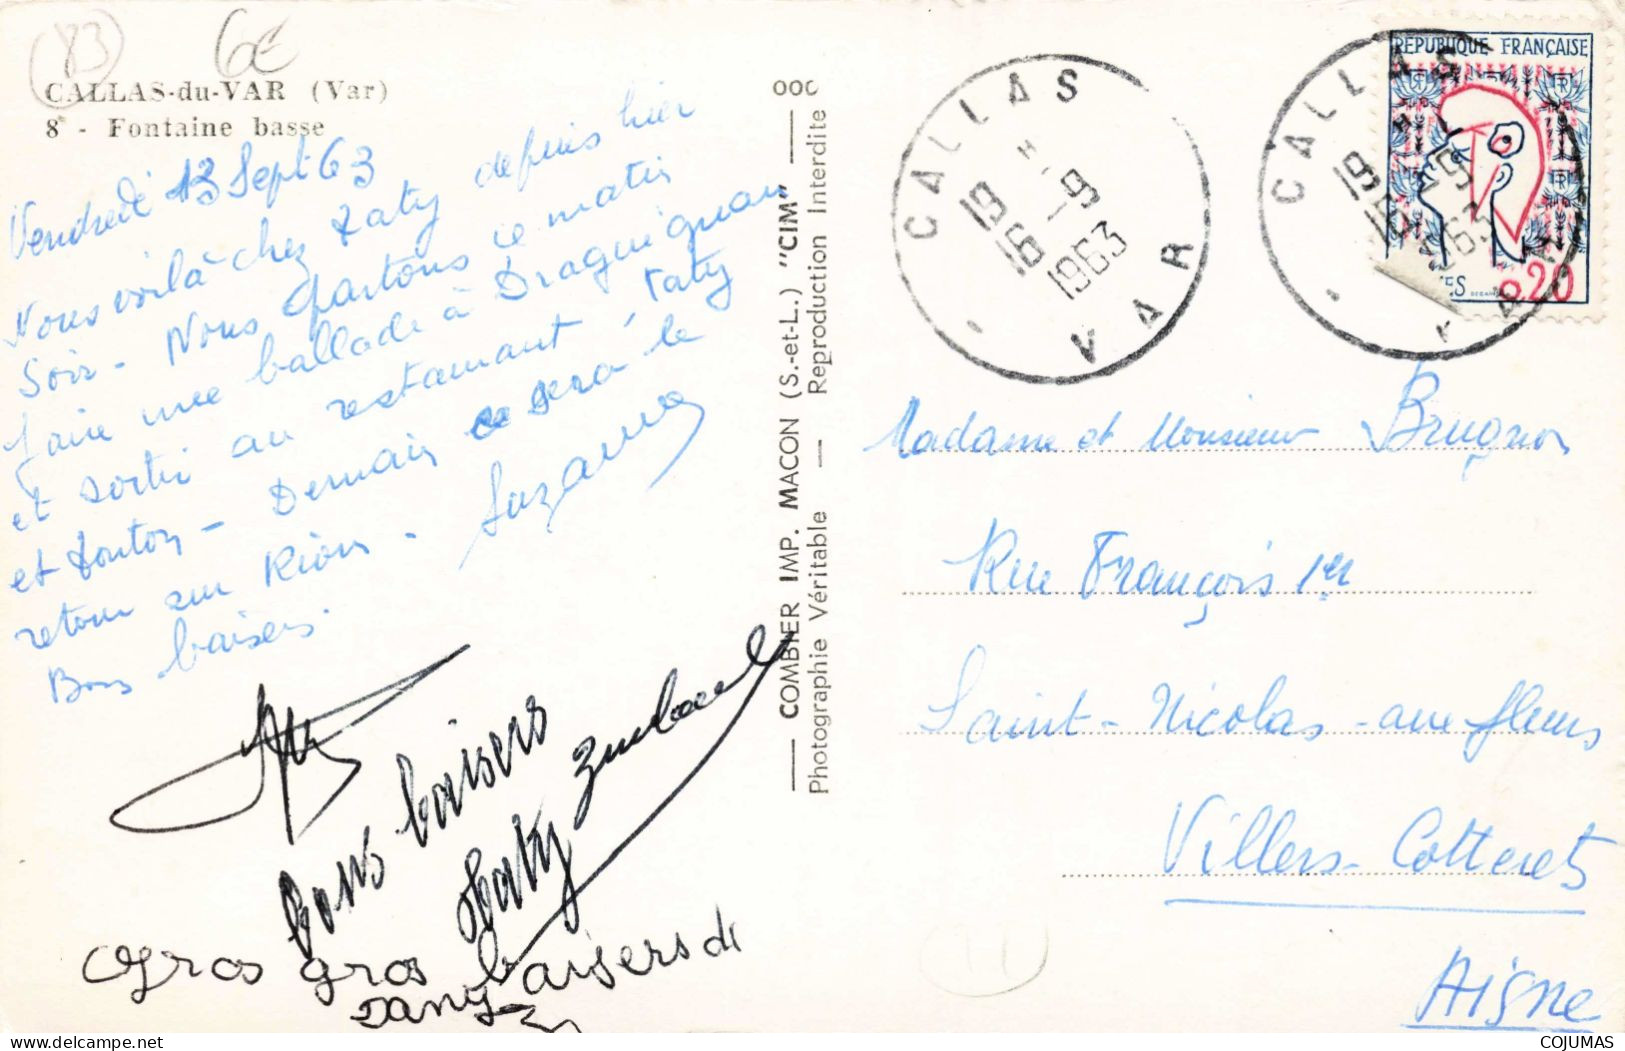 (83)
6€
CALLAS-du-VAR (Var)
8 - Fontaine basse
Vendredi 13 Sept 63
Nous voilà chez Taty depuis hier
Soir - Nous partons ce matin
faire une ballade à Draguignan
et sortir au restaurant, Taty
et tonton - Demain ce sera le
retour sur Rions - Suzanne
Bons baisers.
bons baisers
Taty
Gros gros baisers de
Dany
OOC
COMBIER IMP. MACON (S.-et-L.) "CIM"
Photographie Véritable — Reproduction Interdite
CALLAS
19 H
16 -9
1963
VAR
CALLAS
19 H
16 -9
1963
VAR
RÉPUBLIQUE FRANÇAISE
RF
0,20
Madame et Monsieur Brugnon
Rue François 1er
Saint-Nicolas-aux fleurs
Villers-Cotterets
Aisne
COJUMAS